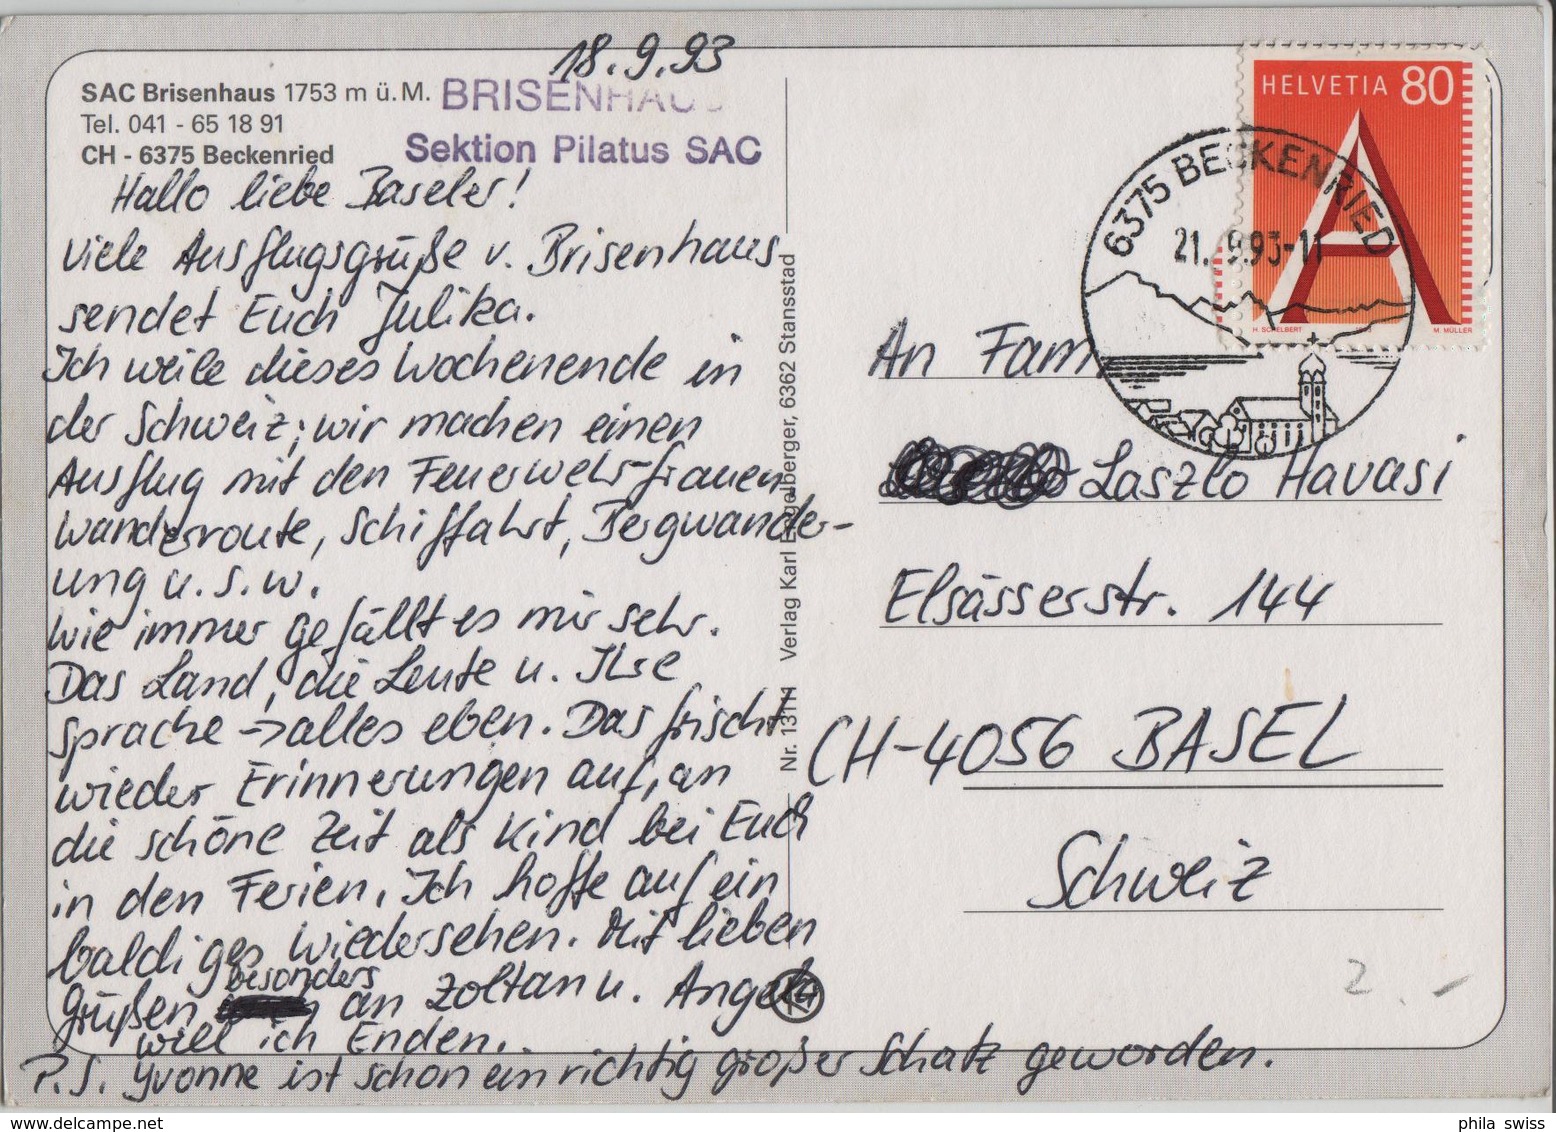 18.9.93
SAC Brisenhaus 1753 m ü.M.
Tel. 041 - 65 18 91
CH - 6375 Beckenried
BRISENHAUS
Sektion Pilatus SAC
Hallo liebe Baseler!
Viele Ausflugsgrüße v. Brisenhaus
sendet Euch Julika.
Ich weile dieses Wochenende in
der Schweiz; wir machen einen
Ausflug mit den Feuerwehrfrauen
Wanderroute, Schiffahrt, Bergwander-
ung u.s.w.
Wie immer gefällt es mir sehr.
Das Land, die Leute u. Ihre
Sprache → alles eben. Das frischt
wieder Erinnerungen auf, an
die schöne Zeit als Kind bei Euch
in den Ferien. Ich hoffe auf ein
baldiges Wiedersehen. Mit lieben
Grüßen besonders an Zoltan u. Angela
will ich Enden.
P.S. Yvonne ist schon ein richtig großer Schatz geworden.
Nr. 1311 Verlag Karl Engelberger, 6362 Stansstad
HELVETIA 80
A
H. SCHELBERT M. MÜLLER
6375 BECKENRIED
21.9.93-11
An Fam.
Laszlo Havasi
Elsässerstr. 144
CH-4056 BASEL
Schweiz
2.-
phila swiss